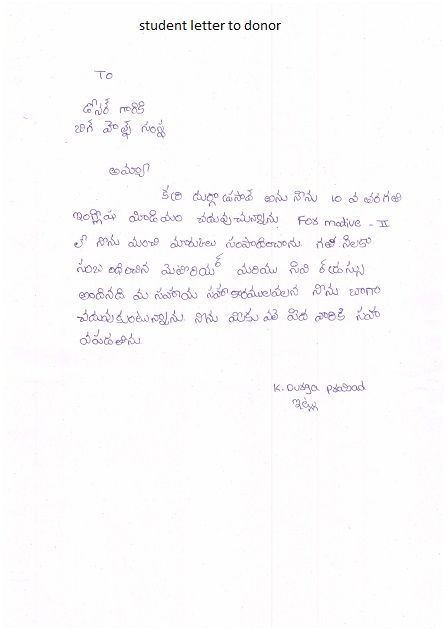 student letter to donor
To
డోనర్ గారికి
బిగ్ హెల్ప్ సంస్థ
అమ్మా
కేరి దుర్గాప్రసాద్ అను నేను 10 వ తరగతి
ఇంగ్లీష మీడియం చదువుచున్నాను. Formative - II
లో నేను మంచి మార్కులు సంపాదించాను. గత నెలకు
సంబంధించిన మెటీరియల్ మరియు
అందినది మీ సహాయ సహకారములవలన నేను బాగా
చదువుకుంటున్నాను. నేను మీకువలె పేద వారికి సహా
యపడతాను.
K. Durga Prasad